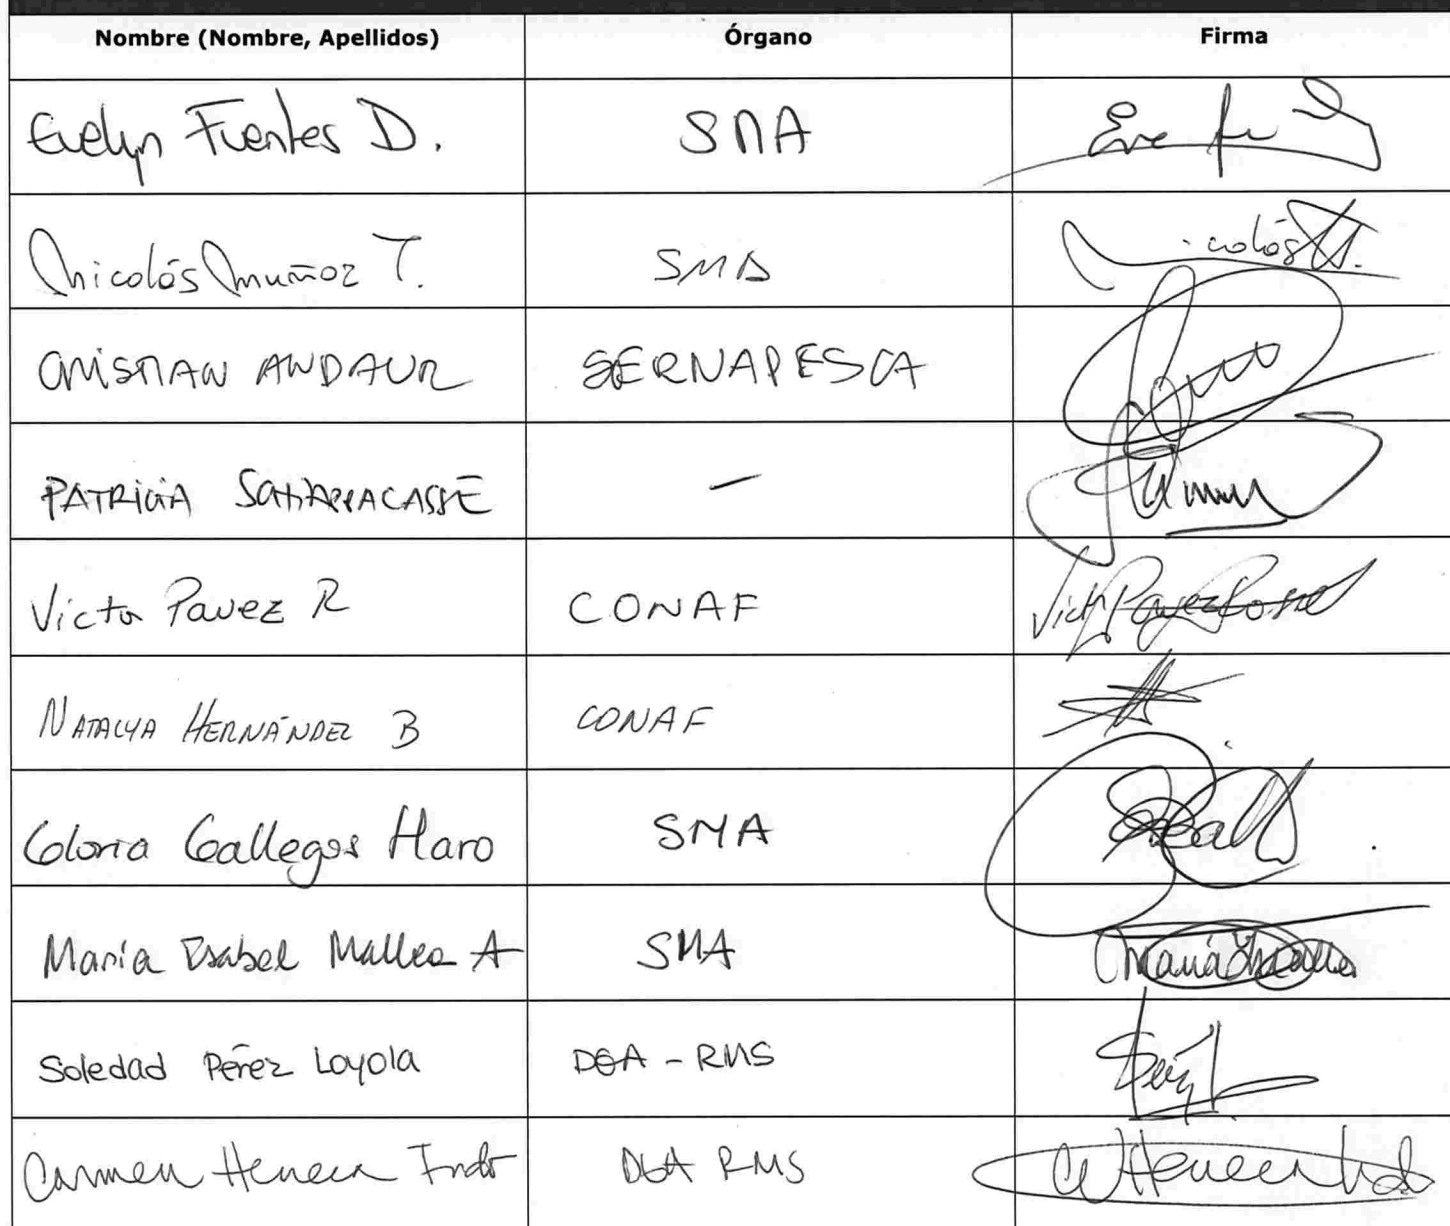 Nombre (Nombre, Apellidos) Órgano Firma
Evelyn Fuentes D. SMA Eve
Nicolás Muñoz T. SMA Nicolás
CRISTIAN ANDAUR SERNAPESCA
PATRICIA SCHIAPPACASSE —
Victor Pavez R CONAF Victor Pavez
NATALYA HERNÁNDEZ B CONAF
Gloria Gallegos Haro SMA
María Isabel Mallea A SMA María
Soledad Pérez Loyola DGA - RMS
Carmen Herrera Indo DGA RMS